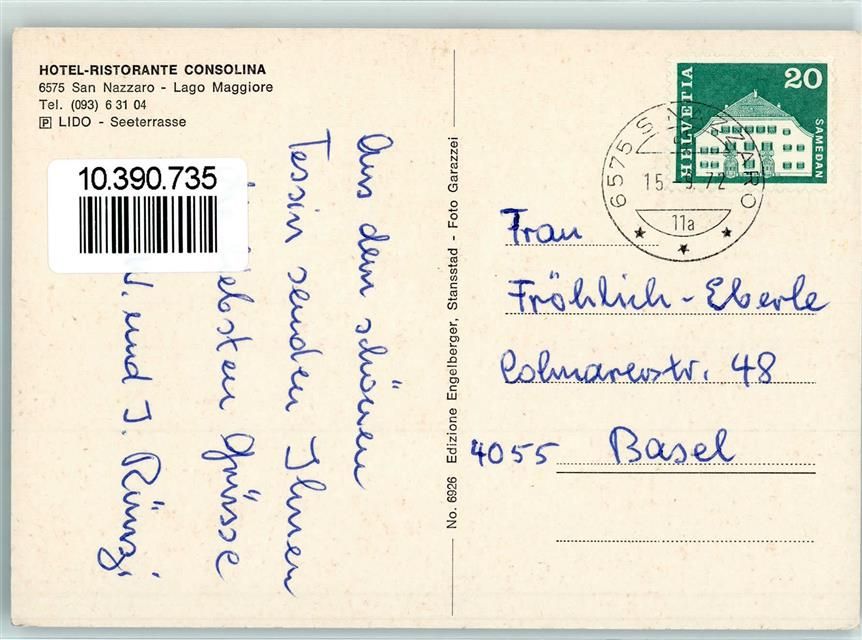 HOTEL-RISTORANTE CONSOLINA
6575 San Nazzaro - Lago Maggiore
Tel. (093) 6 31 04
P LIDO - Seeterrasse
10.390.735
Aus dem schönen
Tessin senden Ihnen
Grüsse
und J. Rünzi
No. 6926 Edizione Engelberger, Stansstad - Foto Garazzei
HELVETIA
20
SAMEDAN
6575 S. NAZZARO
15. 9. 72
11a
Frau
Fröhlich-Eberle
Colmarerstr. 48
4055 Basel